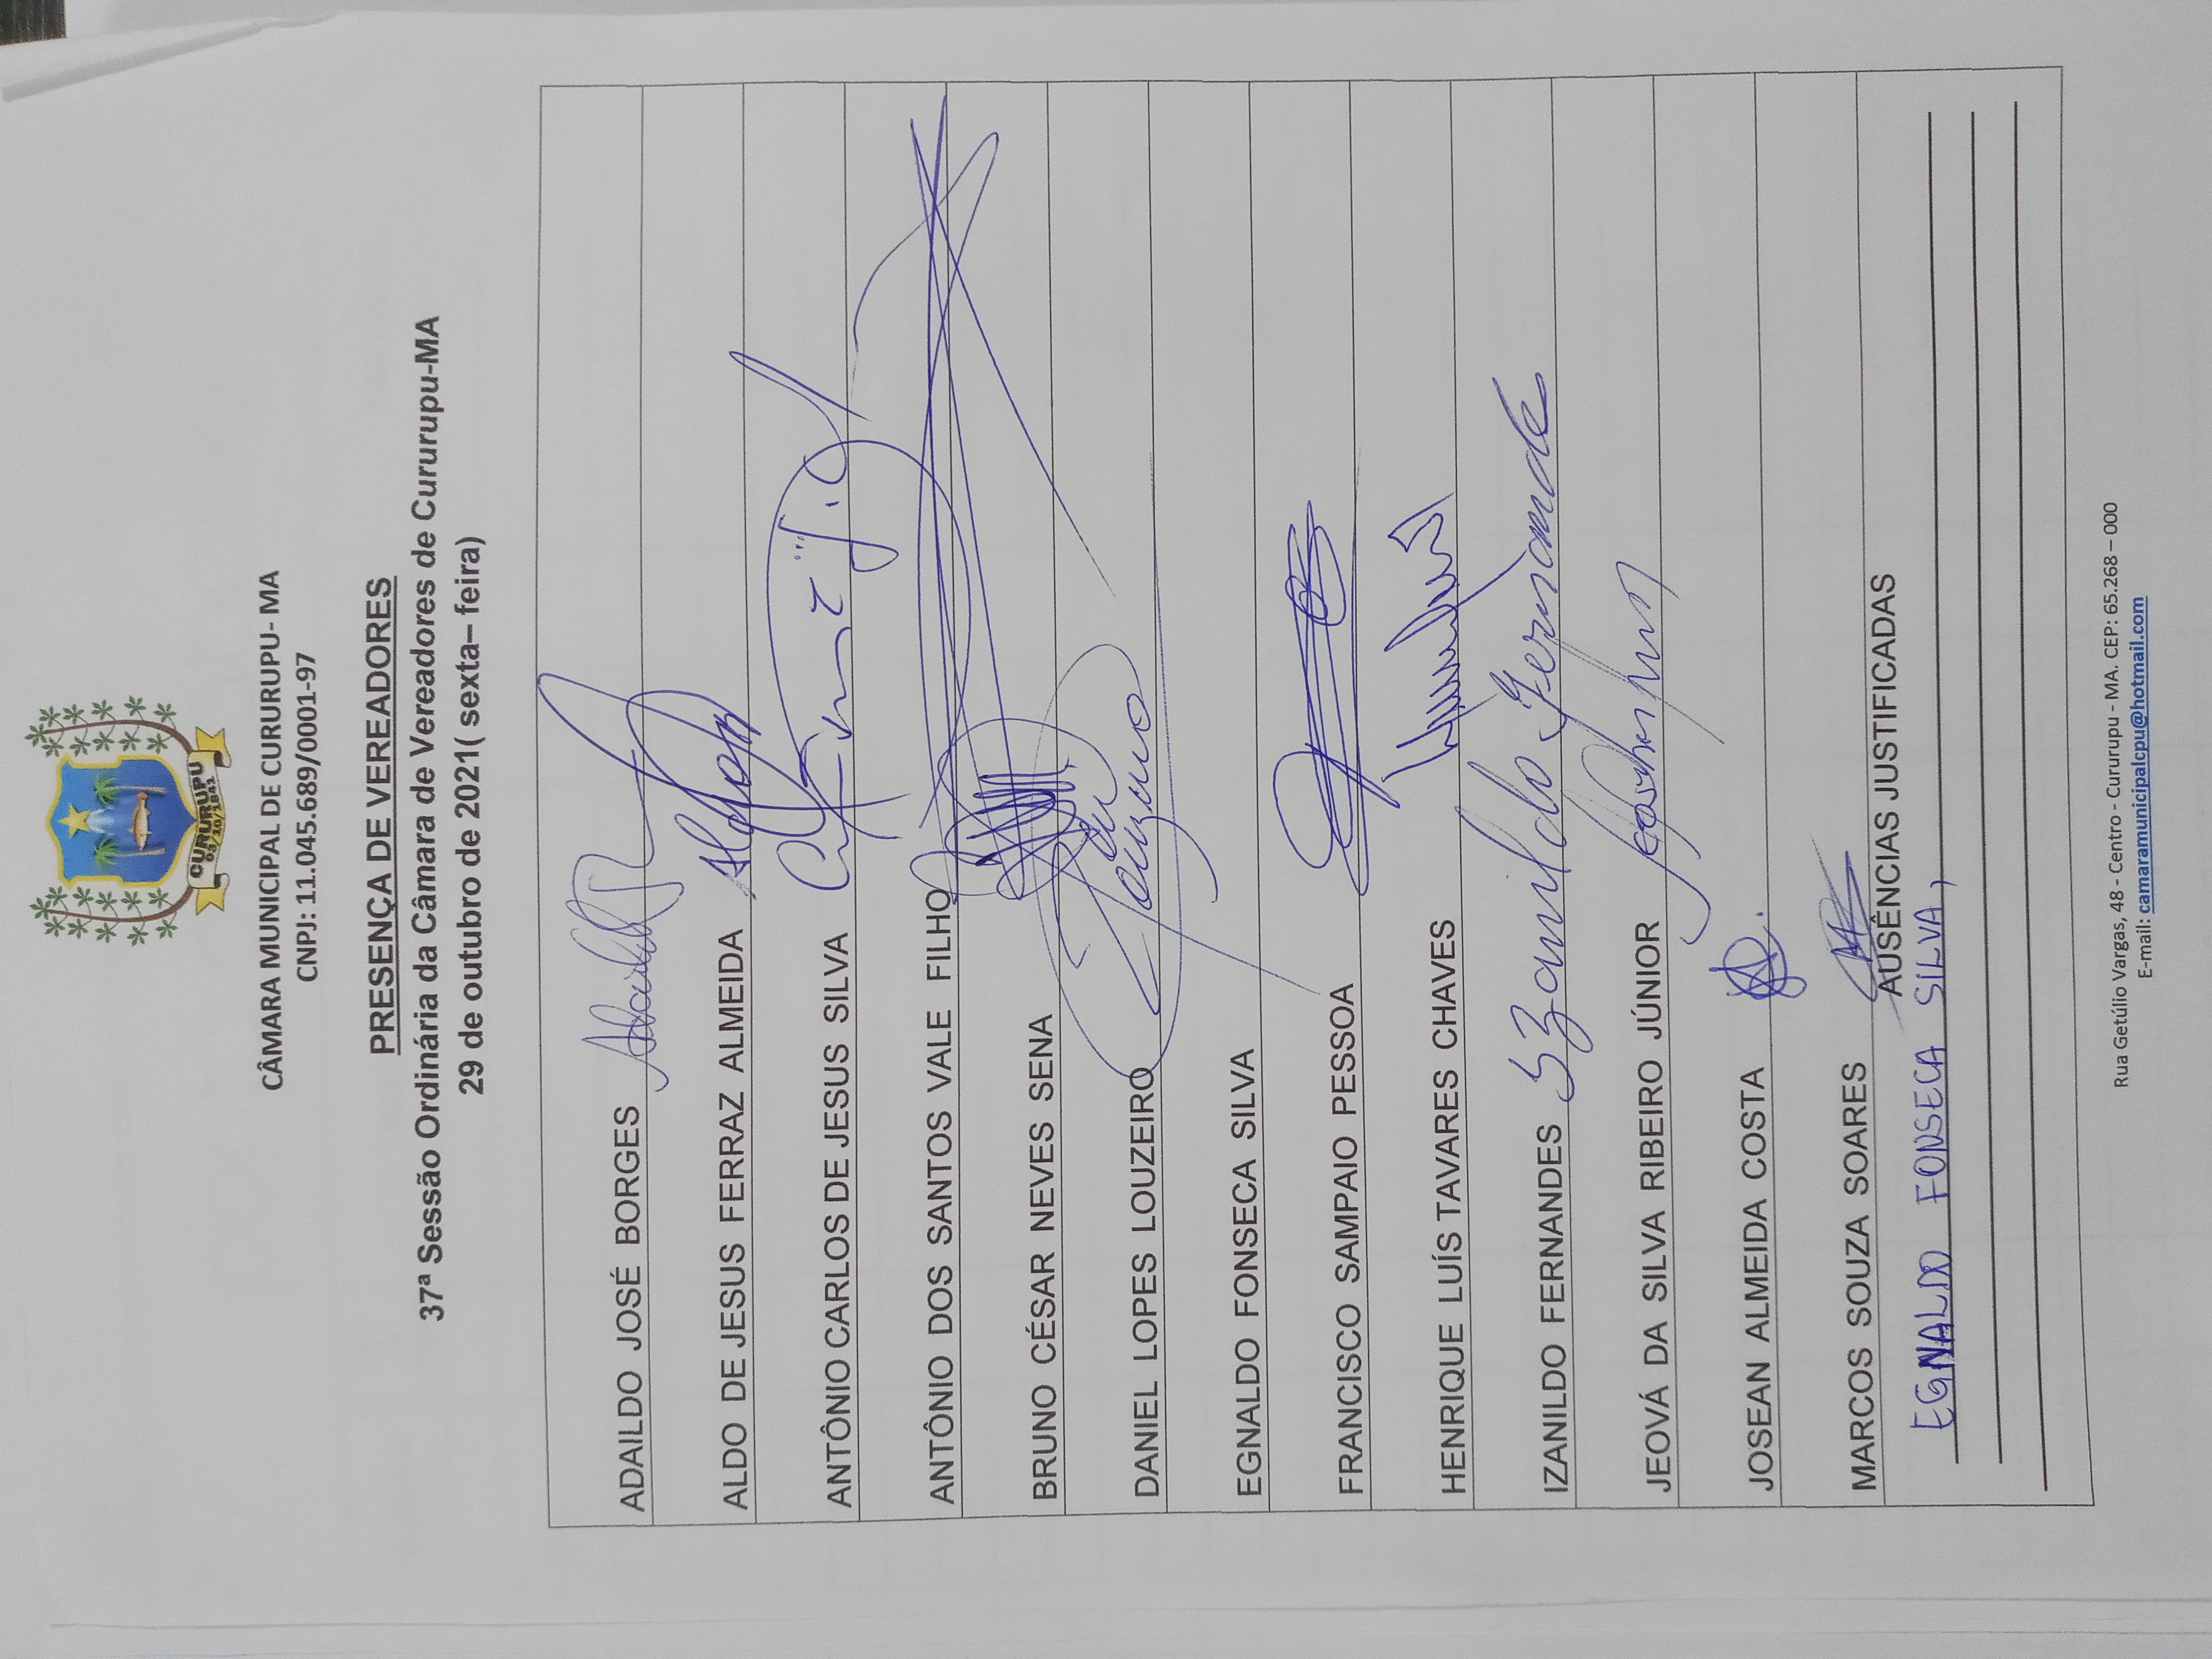 CURURUPU
03/10/1841
CÂMARA MUNICIPAL DE CURURUPU- MA
CNPJ: 11.045.689/0001-97
PRESENÇA DE VEREADORES
37ª Sessão Ordinária da Câmara de Vereadores de Cururupu-MA
29 de outubro de 2021( sexta– feira)
ADAILDO JOSÉ BORGES
ALDO DE JESUS FERRAZ ALMEIDA Aldo
ANTÔNIO CARLOS DE JESUS SILVA
ANTÔNIO DOS SANTOS VALE FILHO
BRUNO CÉSAR NEVES SENA
DANIEL LOPES LOUZEIRO
EGNALDO FONSECA SILVA
FRANCISCO SAMPAIO PESSOA
HENRIQUE LUÍS TAVARES CHAVES
IZANILDO FERNANDES Izanildo Fernandes
JEOVÁ DA SILVA RIBEIRO JÚNIOR
JOSEAN ALMEIDA COSTA
MARCOS SOUZA SOARES
AUSÊNCIAS JUSTIFICADAS
EGNALDO FONSECA SILVA,
Rua Getúlio Vargas, 48 - Centro - Cururupu - MA. CEP: 65.268 – 000
E-mail: camaramunicipalcpu@hotmail.com